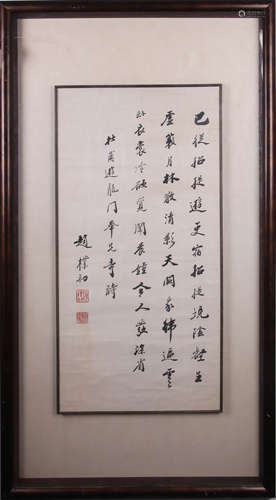 已從招提遊更宿招提境陰壑生
虛籟月林散清影天闕象緯逼雲
臥衣裳冷欲覺聞晨鐘令人發深省
杜甫遊龍門奉先寺詩
趙樸初